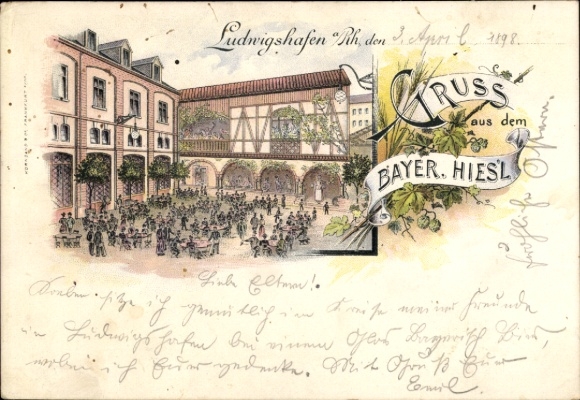 Ludwigshafen a/Rh, den 3. April 1898.
GRUSS
aus dem
BAYER. HIESL
Fröhliche Ostern.
Liebe Eltern!
sitze ich gemütlich im Kreise meiner Freunde
in Ludwigshafen bei einem Glas Bayerisch Bier,
wobei ich Eurer gedenke. Mit Gruß Euer
Emil.